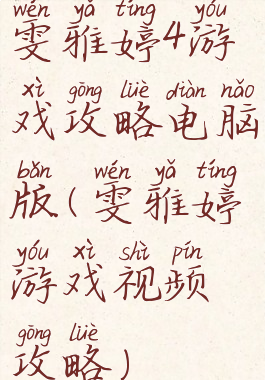 wén yǎ tíng yóu
雯雅婷4游
xì gōng lüè diàn nǎo
戏攻略电脑
bǎn wén yǎ tíng
版(雯雅婷
yóu xì shì pín
游戏视频
gōng lüè
攻略)